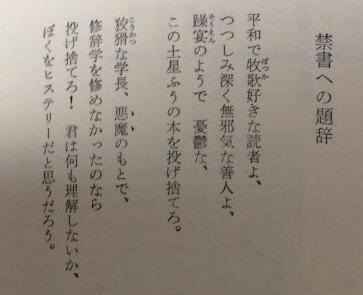 禁書への題辞
平和で牧歌好きな読者よ、
つつしみ深く無邪気な善人よ、
躁宴のようで 憂鬱な、
この土星ふうの本を投げ捨てろ。
狡猾な学長、悪魔のもとで、
修辞学を修めなかったのなら
投げ捨てろ! 君は何も理解しないか、
ぼくをヒステリーだと思うだろう。